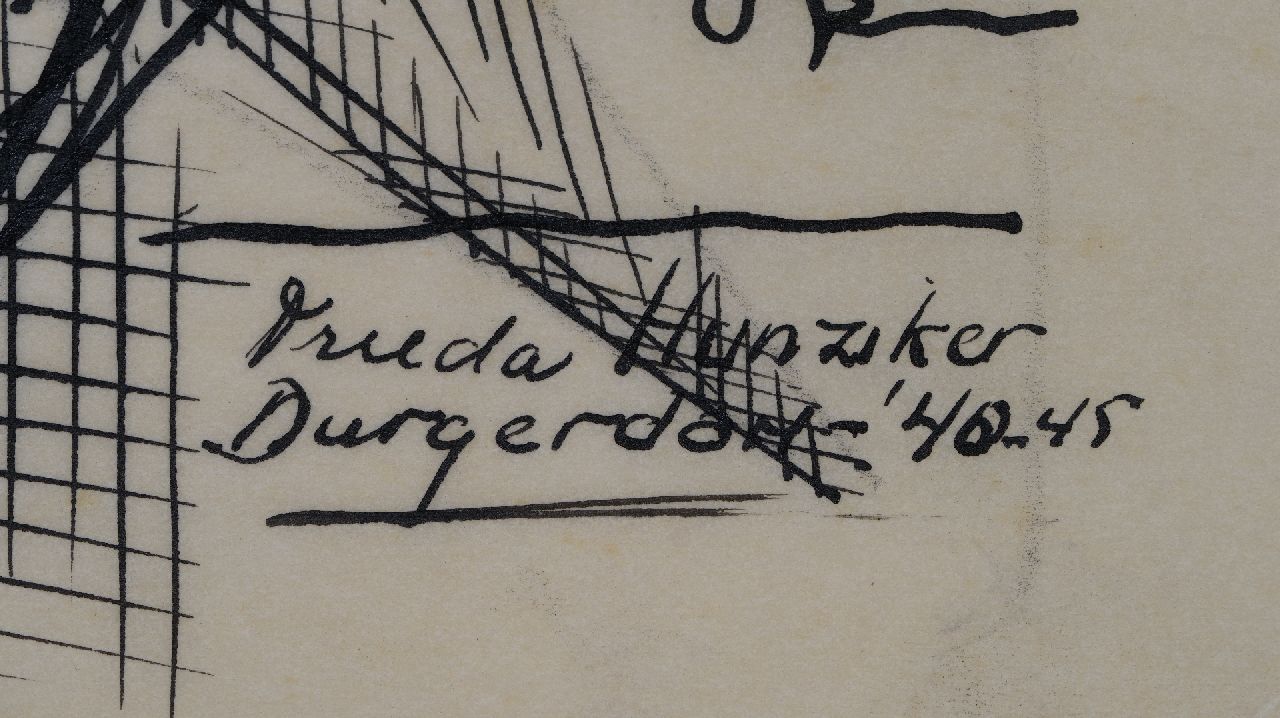 Frieda Hunziker
Durgerdam - '40-45